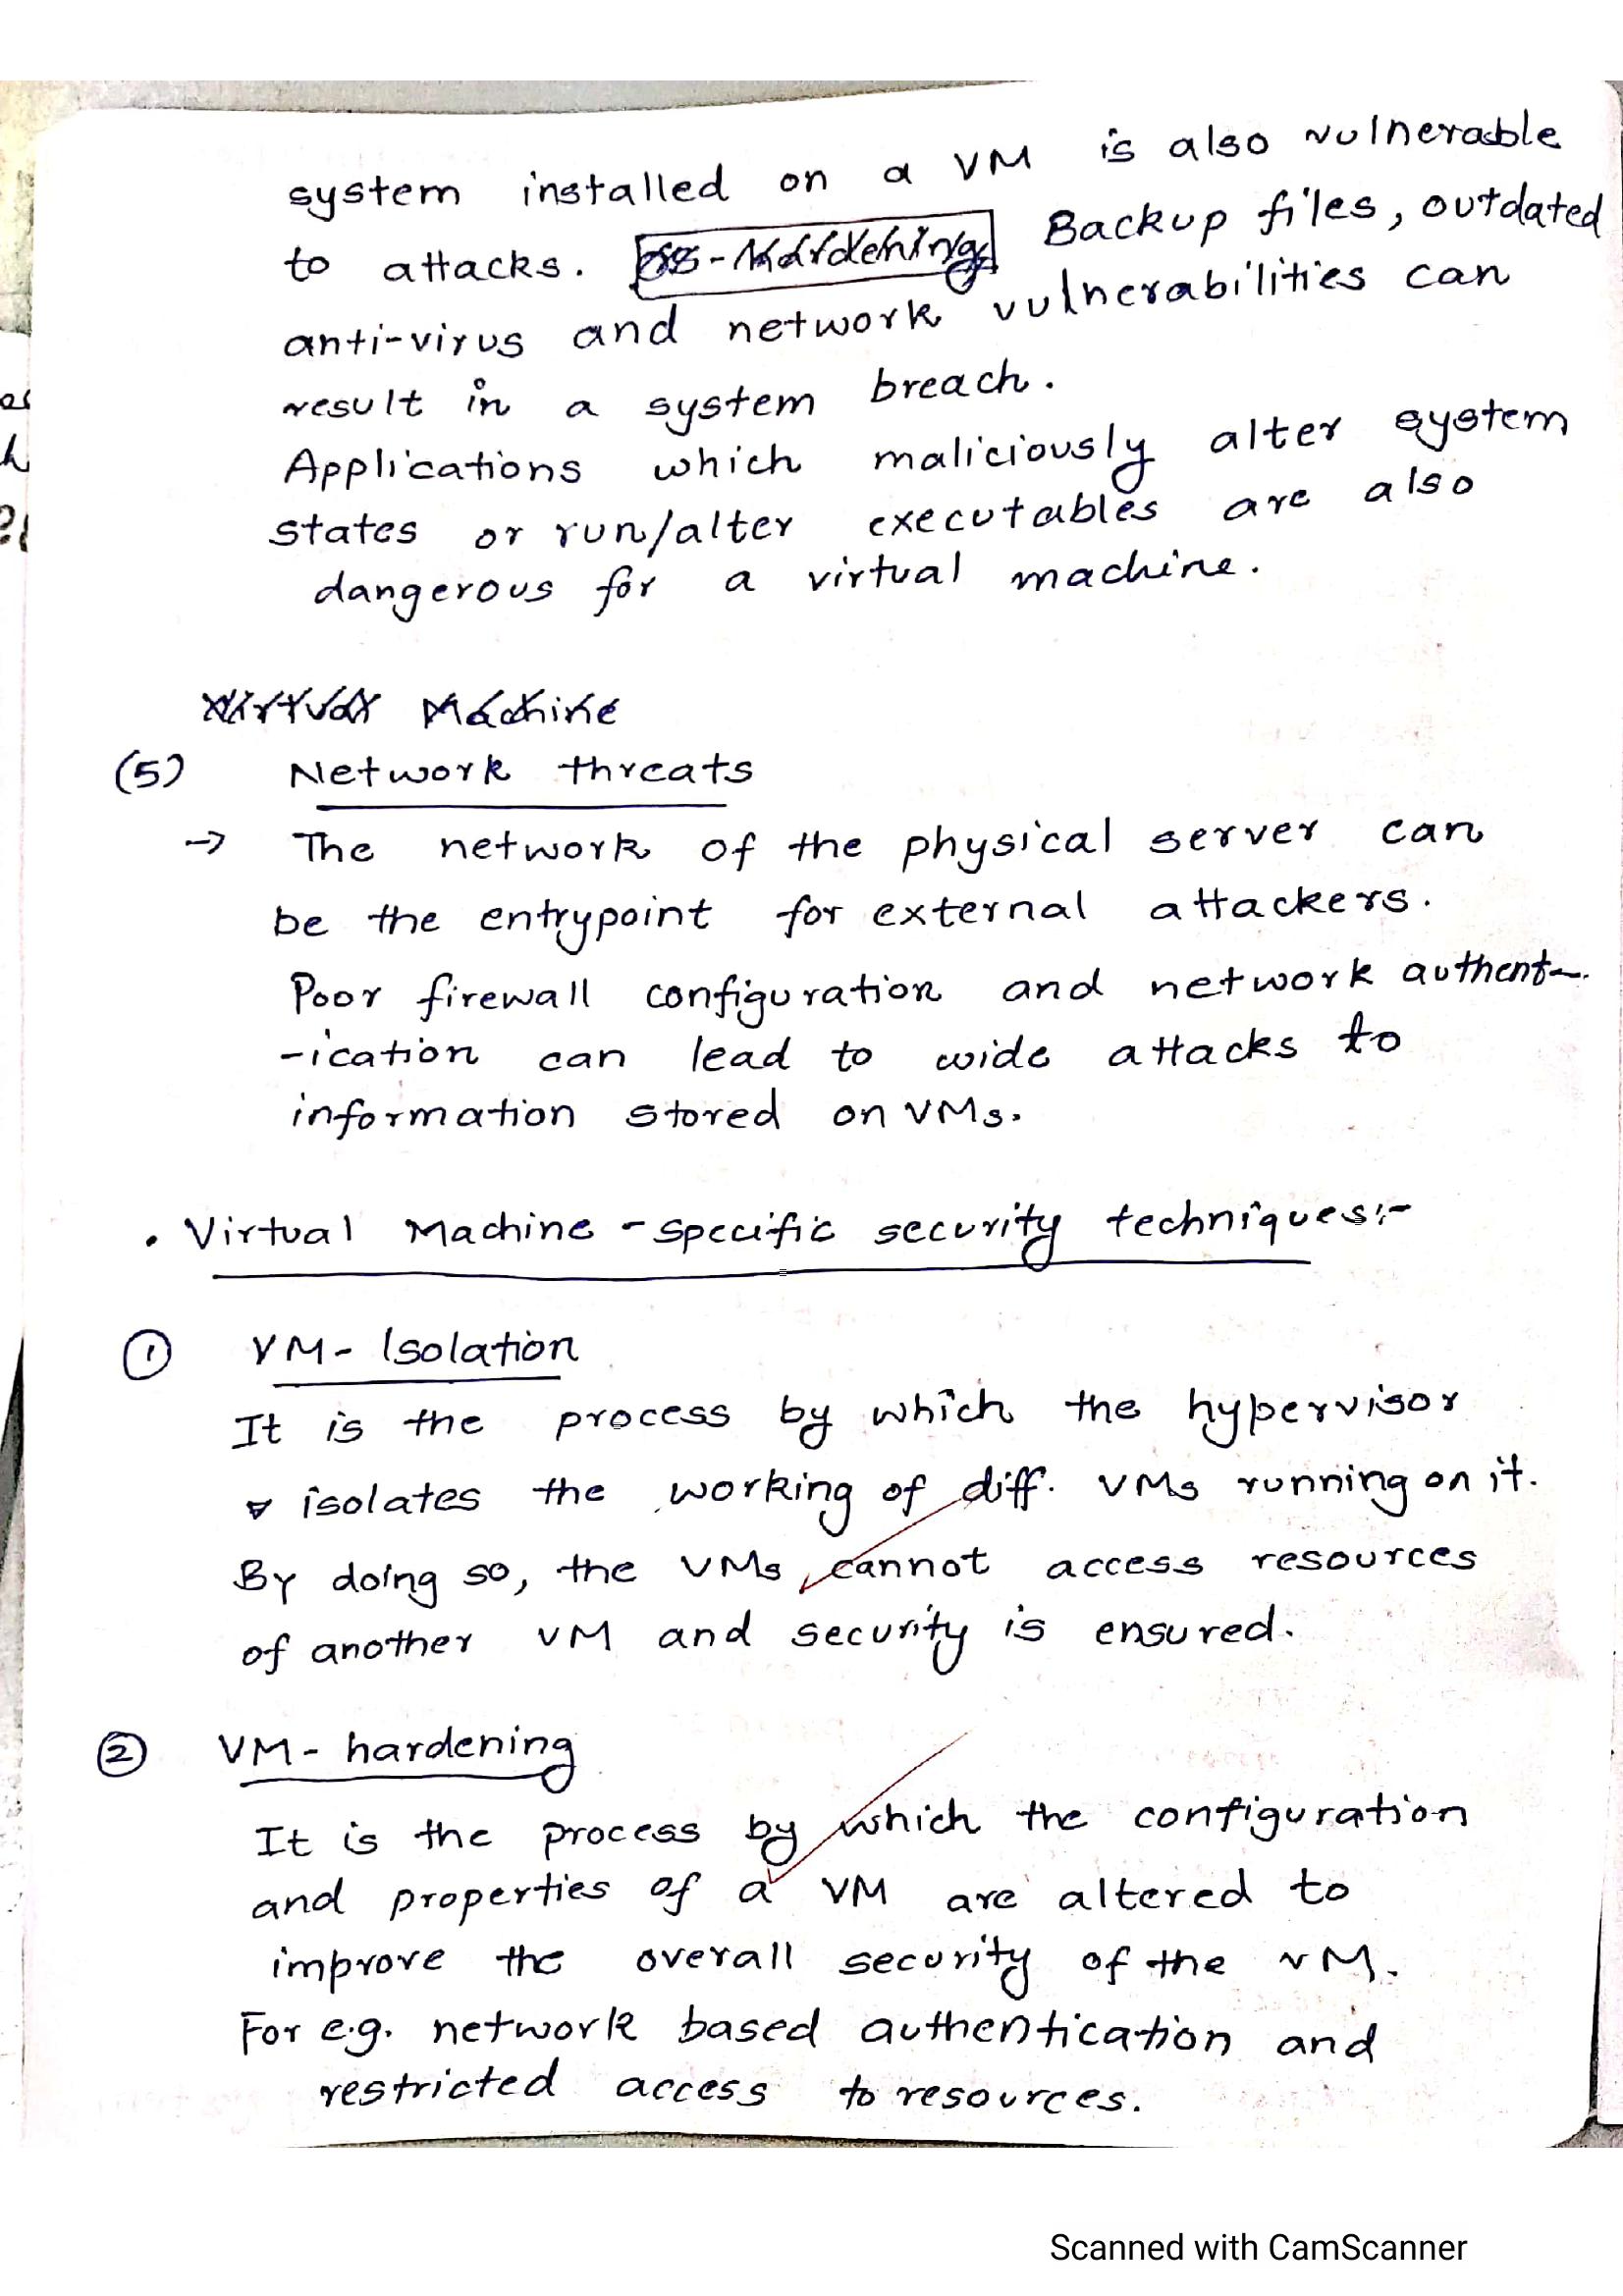 system installed on a VM is also vulnerable
to attacks. OS-Hardening Backup files, outdated
anti-virus and network vulnerabilities can
result in a system breach.
Applications which maliciously alter system
states or run/alter executables are also
dangerous for a virtual machine.
Virtual Machine
(5) Network threats
→ The network of the physical server can
be the entrypoint for external attackers.
Poor firewall configuration and network authent-
-ication can lead to wide attacks to
information stored on VMs.
• Virtual Machine - specific security techniques:-
① VM- Isolation
It is the process by which the hypervisor
isolates the working of diff. VMs running on it.
By doing so, the VMs cannot access resources
of another VM and security is ensured.
② VM- hardening
It is the process by which the configuration
and properties of a VM are altered to
improve the overall security of the VM.
For e.g. network based authentication and
restricted access to resources.
Scanned with CamScanner